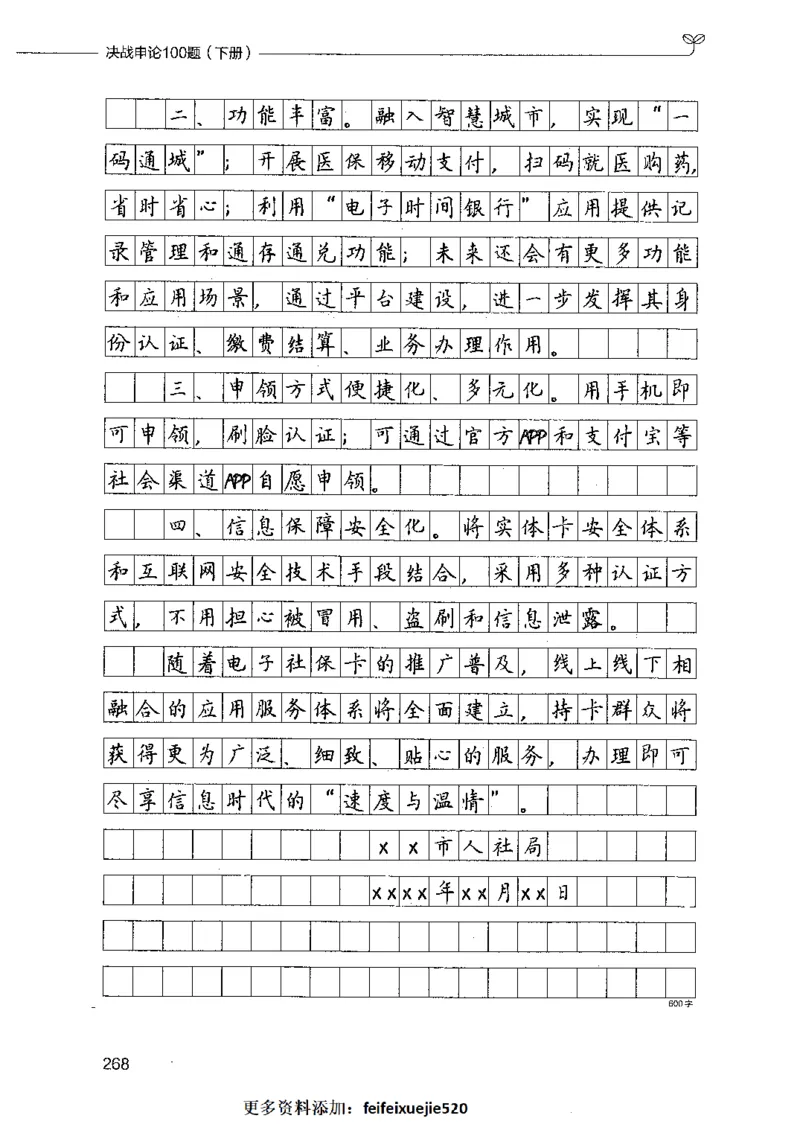 决战申论100题（下册）
二、功能丰富。融入智慧城市，实现“一
码通城”；开展医保移动支付，扫码就医购药，
省时省心；利用“电子时间银行”应用提供记
录管理和通存通兑功能；未来还会有更多功能
和应用场景，通过平台建设，进一步发挥其身
份认证、缴费结算、业务办理作用。
三、申领方式便捷化、多元化。用手机即
可申领，刷脸认证；可通过官方APP和支付宝等
社会渠道APP自愿申领。
四、信息保障安全化。将实体卡安全体系
和互联网安全技术手段结合，采用多种认证方
式，不用担心被冒用、盗刷和信息泄露。
随着电子社保卡的推广普及，线上线下相
融合的应用服务体系将全面建立，持卡群众将
获得更为广泛、细致、贴心的服务，办理即可
尽享信息时代的“速度与温情”。
××市人社局
××××年××月××日
600字
268
更多资料添加：feifeixuejie520